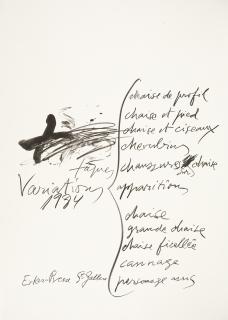 Tàpies
Variations
1984
Erker-Presse St. Gallen
chaise de profil
chaise et pied
chaise et ciseaux
cherubin
chaussures sur chaise
apparition
chaise
grande chaise
chaise ficellée
cannage
personage nus